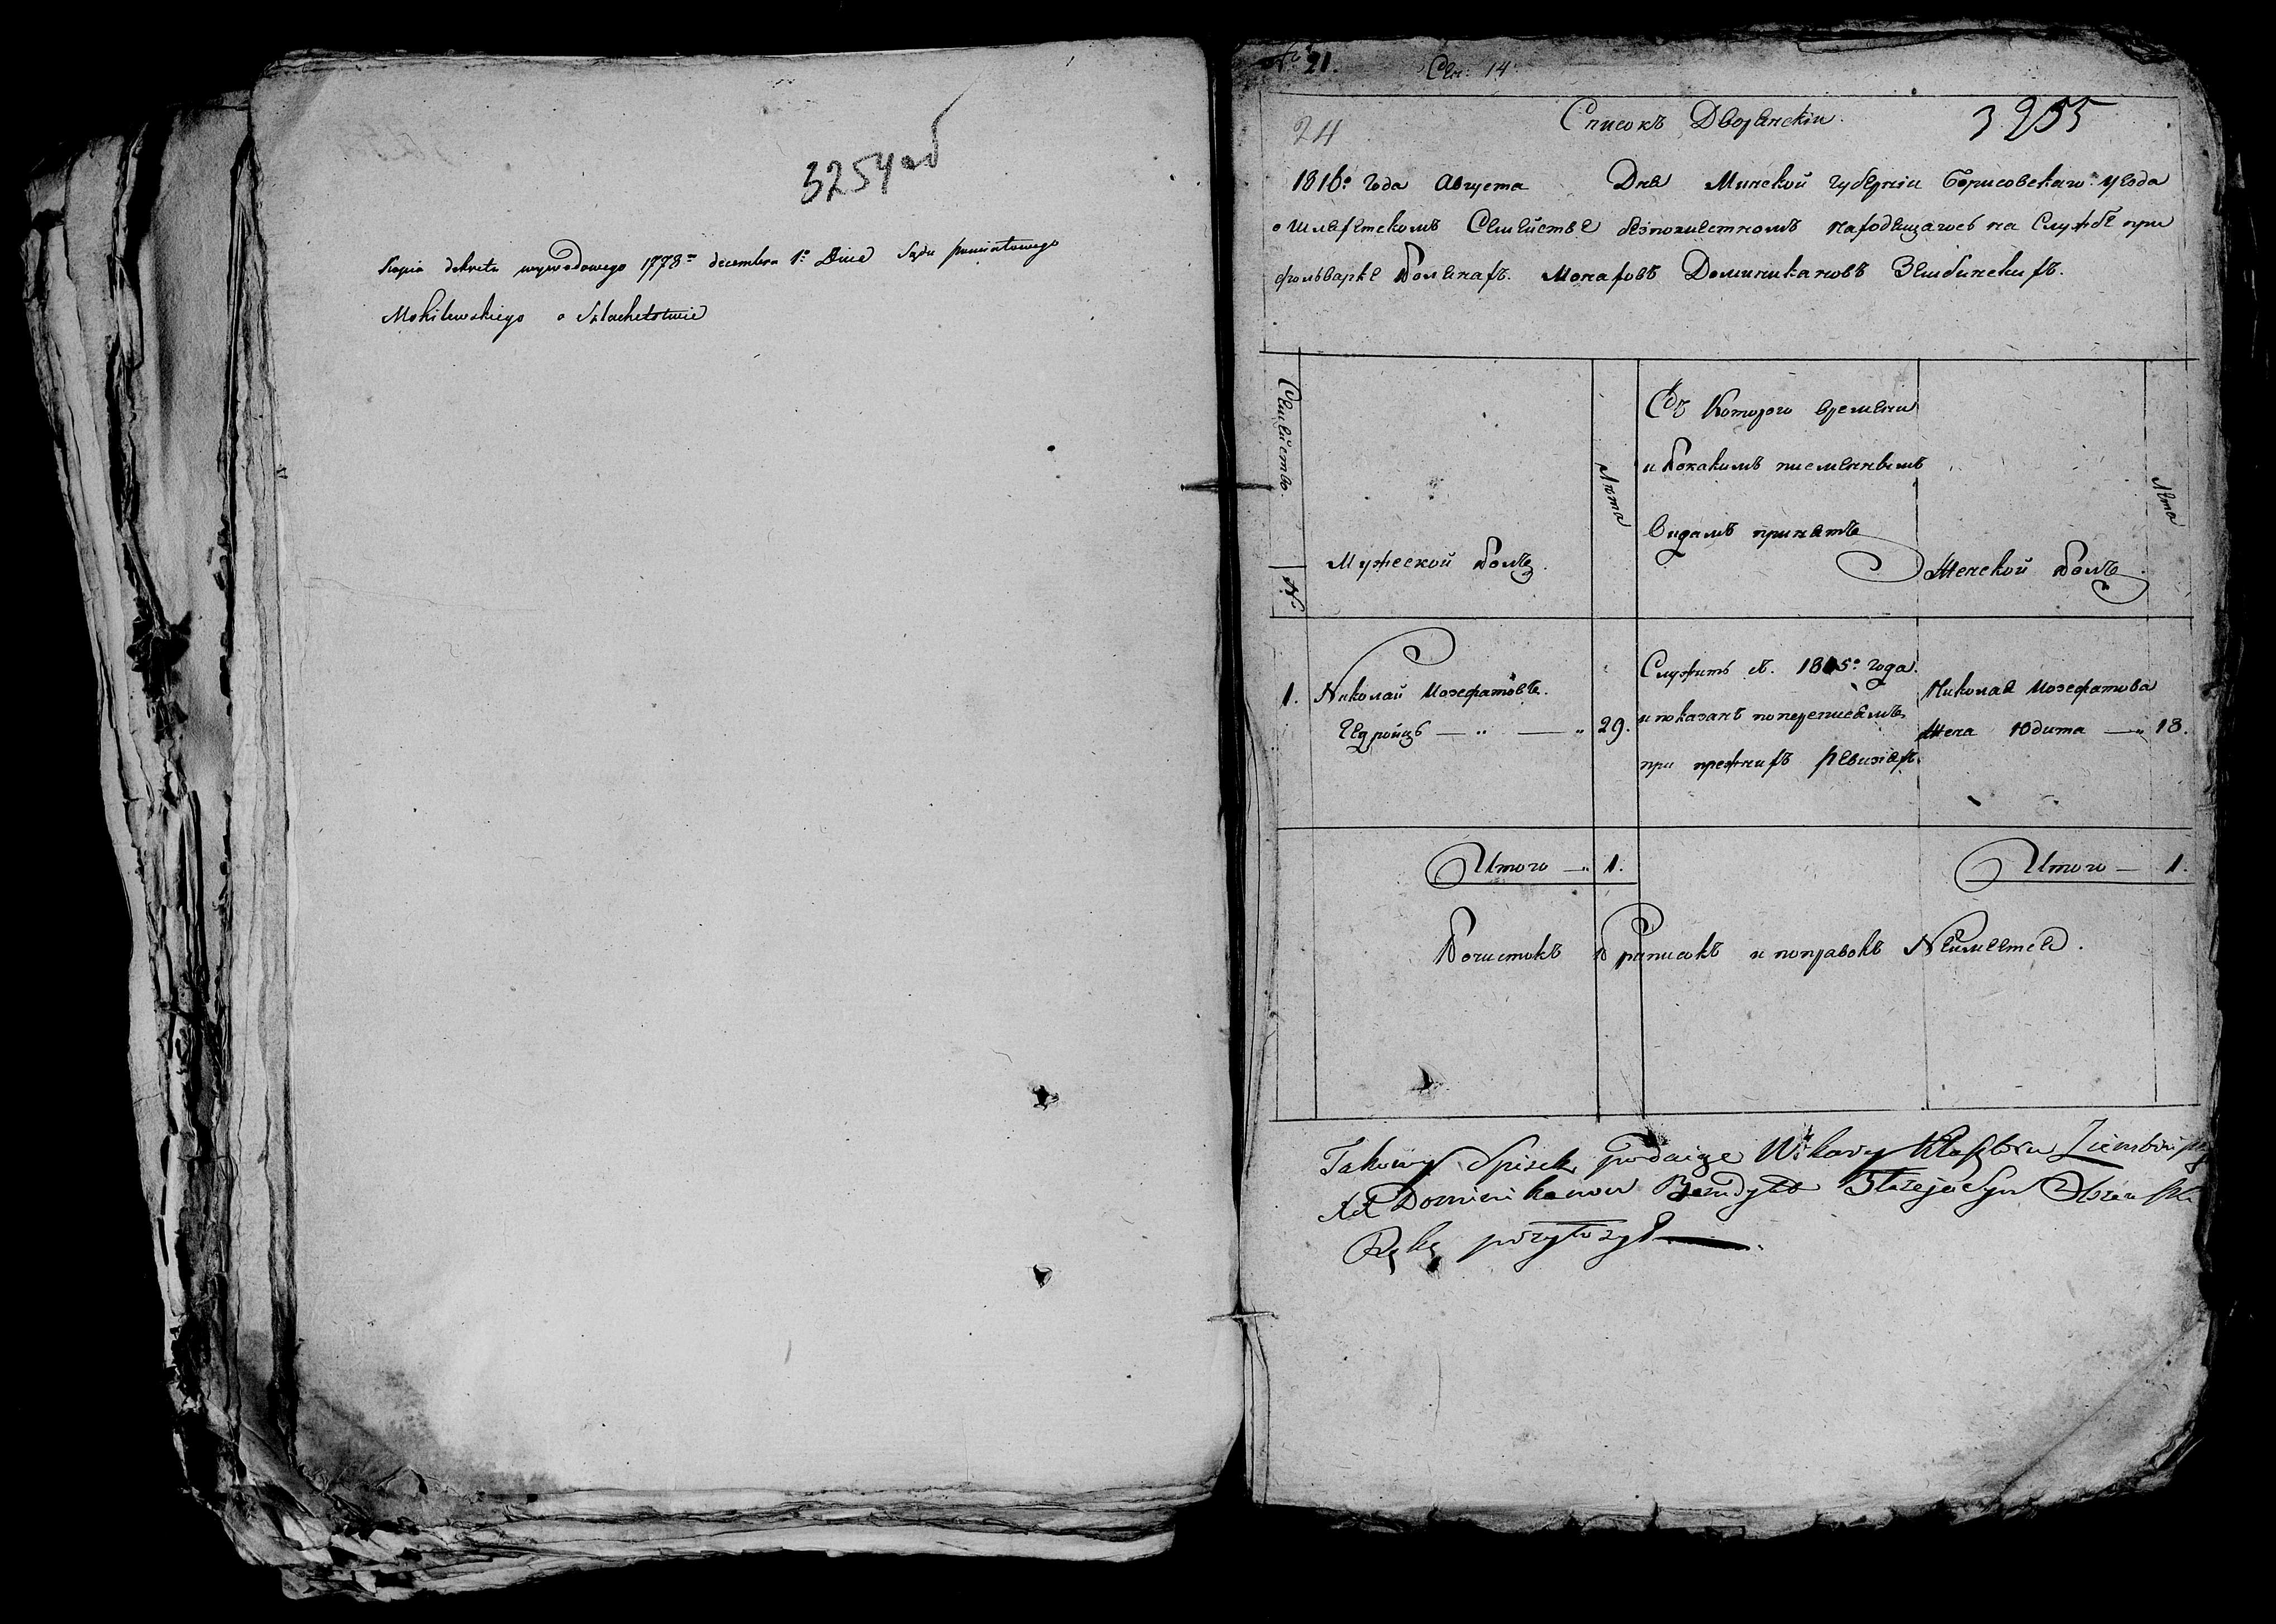 3254 об
Kopia dekretu wywodowego 1778 decembra 1º Dnia Sądu powiatowego
Mohilewskiego o Szlachetstwie
№ 21. Сем: 14
Списокъ Дворянскiи. 3255
24
1816º года Августа Дня Минской губернiи Борисовскаго уезда
о Шляхетскомъ Семействе безпоместномъ находящагось на Службе при
фольварке Монаховъ Доминикановъ Зембинскихъ.
Семейство.
№
Мужеской Полъ.
Лѣта
Съ Которого времени
и Покакимъ писменнымъ
Видамъ принятъ
Женской Полъ.
Лета
1. Николай Иозефатовъ.
— „ — „ 29.
Служитъ съ 1815º года.
и показанъ поперeписямъ
при прежнихъ Ревизiях
Николая Иозефатова
Жена Юдита — „ 18.
Итого — „ 1.
Итого — 1.
Почистокъ Приписокъ и поправокъ Неимеется.
Takowy Spisek podaię Wikary Klasztoru
XX Dominikanow
Rękę przyłożył